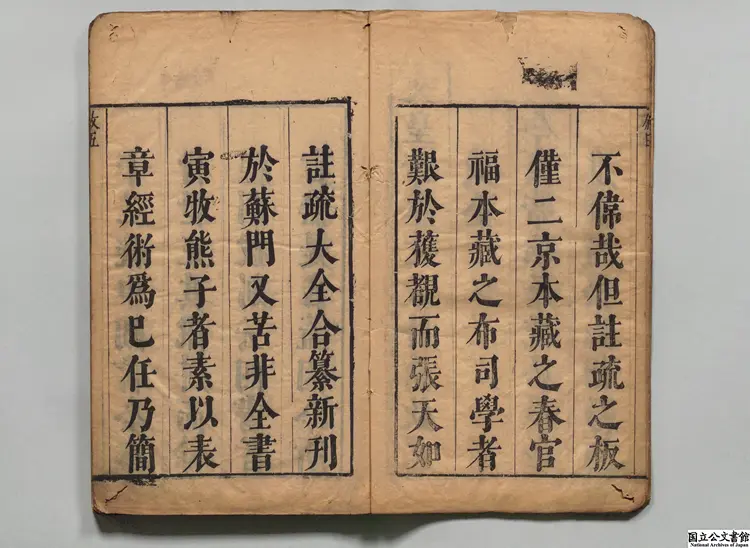 不偉哉但註疏之板
僅二京本藏之春官
福本藏之布司學者
艱於蒦覩而張天如
註疏大全合纂新刊
於蘇門又苦非全書
寅牧熊子者素以表
章經術爲巳任乃簡
国立公文書館
National Archives of Japan